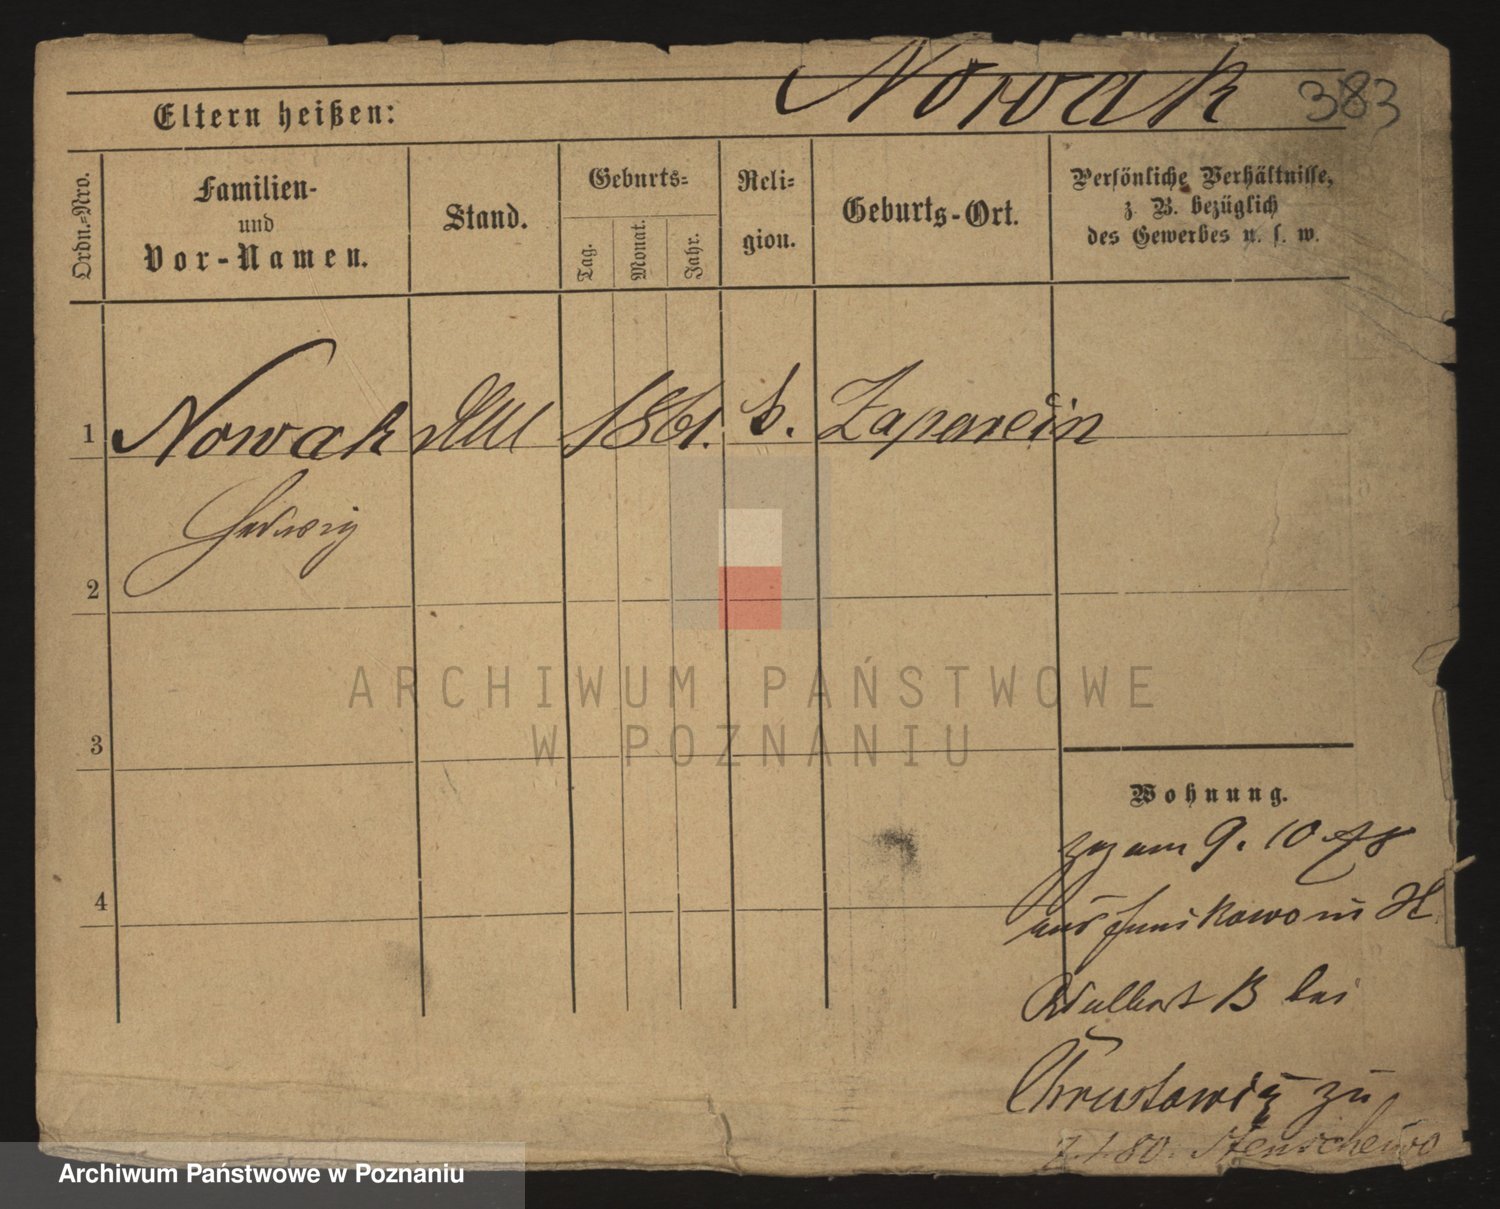 Nowak 383
Eltern heißen:
Ordn.-Nro.
Familien- und Vor-Namen.
Stand.
Geburts-
Tag.
Monat.
Jahr.
Reli-
gion.
Geburts-Ort.
Persönliche Verhältnisse,
z. B. bezüglich
des Gewerbes u. s. w.
1 Nowak 1861.
Hedwig
2
3
4
ARCHIWUM PAŃSTWOWE
W POZNANIU
Wohnung.
am 9. 10 78
aus
B bei
zu
80.
Archiwum Państwowe w Poznaniu